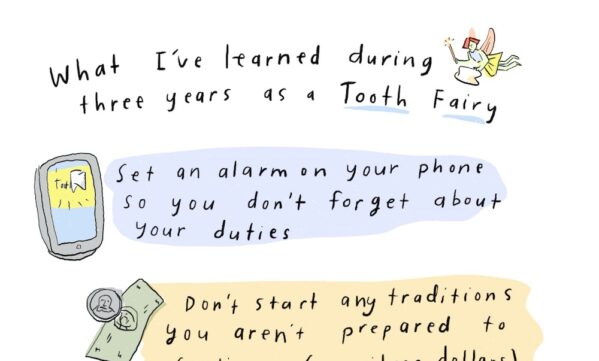 What I've learned during
three years as a Tooth Fairy
Toot
Set an alarm on your phone
so you don't forget about
your duties
Don't start any traditions
you aren't prepared to
dollars)